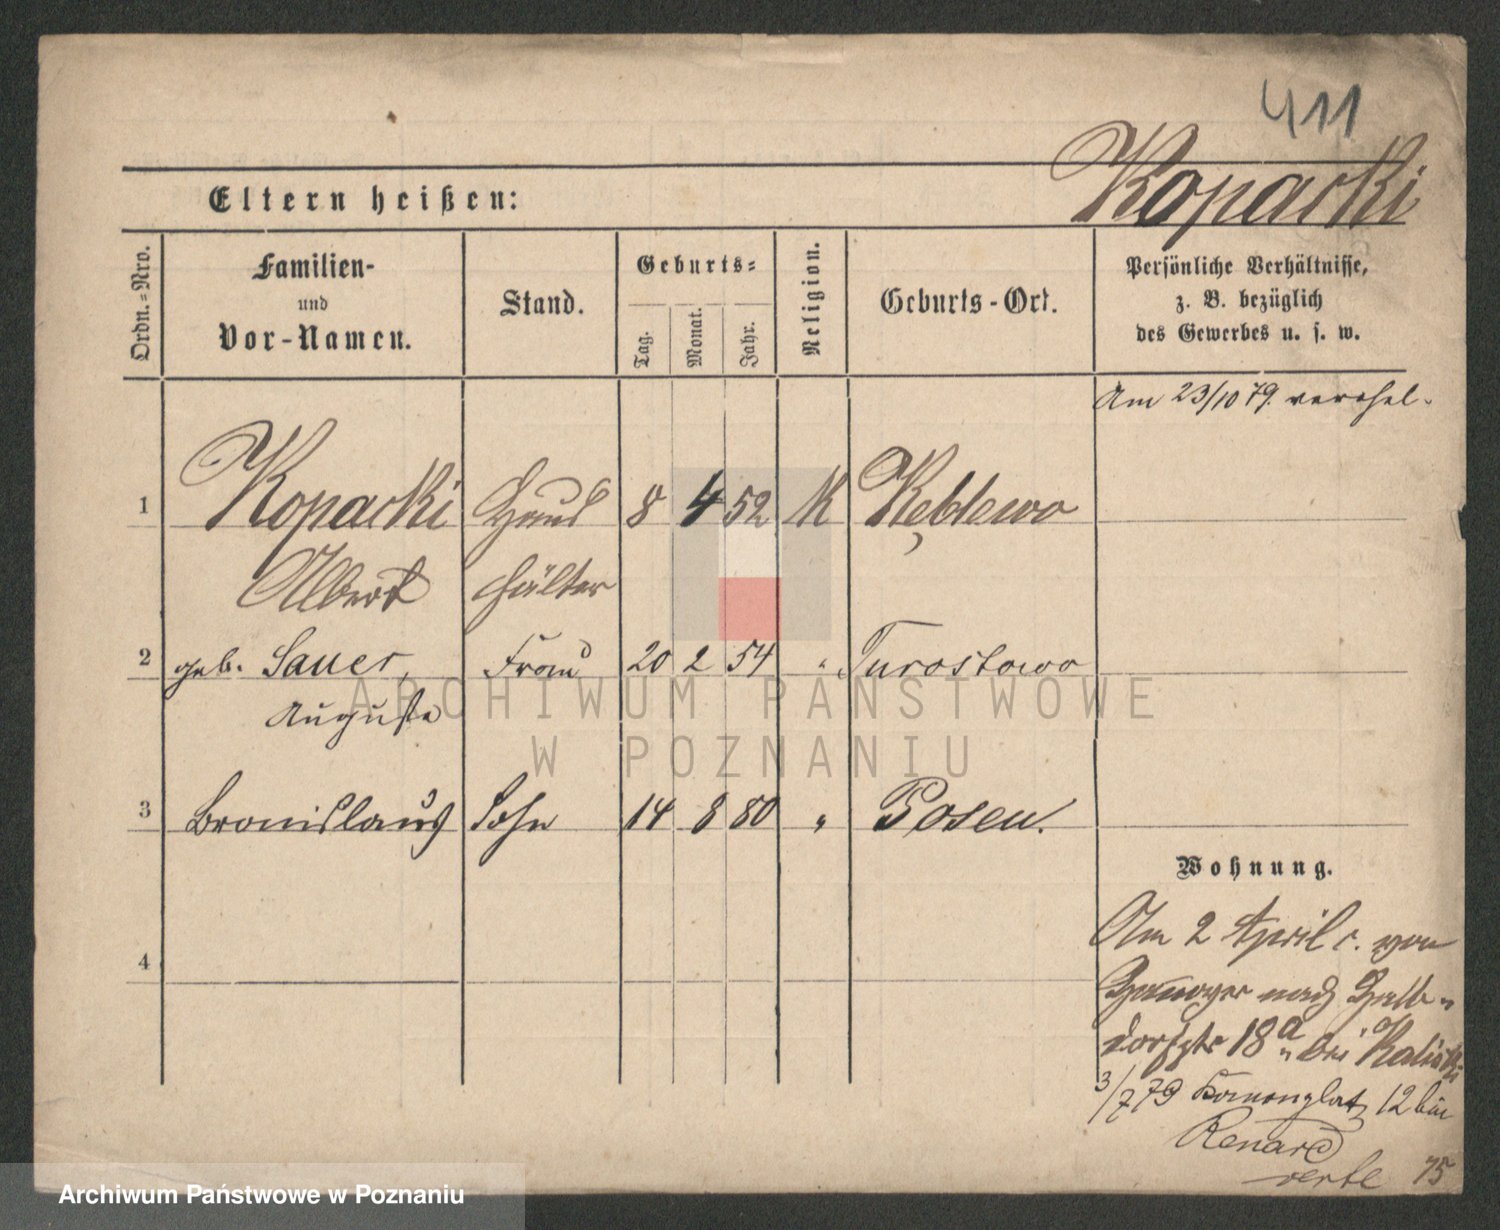 411
Kopacki
Eltern heißen:
Ordn.=Nro.
Familien-
und
Vor-Namen.
Stand.
Geburts=
Tag.
Monat.
Jahr.
Religion.
Geburts-Ort.
Persönliche Verhältnisse,
z. B. bezüglich
des Gewerbes u. s. w.
Am 23/10 79. verehel.
1 Kopacki Haus 8 4 52 K Kęblewo
Albert hälter
2 geb. Sauer, Frau 20 2 54 " Turostowo
Auguste
3 Bronislaus Sohn 14 8 80 " Posen.
Wohnung.
4
Am 2 April c. von
nach Halb-
dorfstr 18a bei Kaliski
3/7 79 Kanonenplatz 12 bei
Renard
75
ARCHIWUM PAŃSTWOWE
W POZNANIU
Archiwum Państwowe w Poznaniu